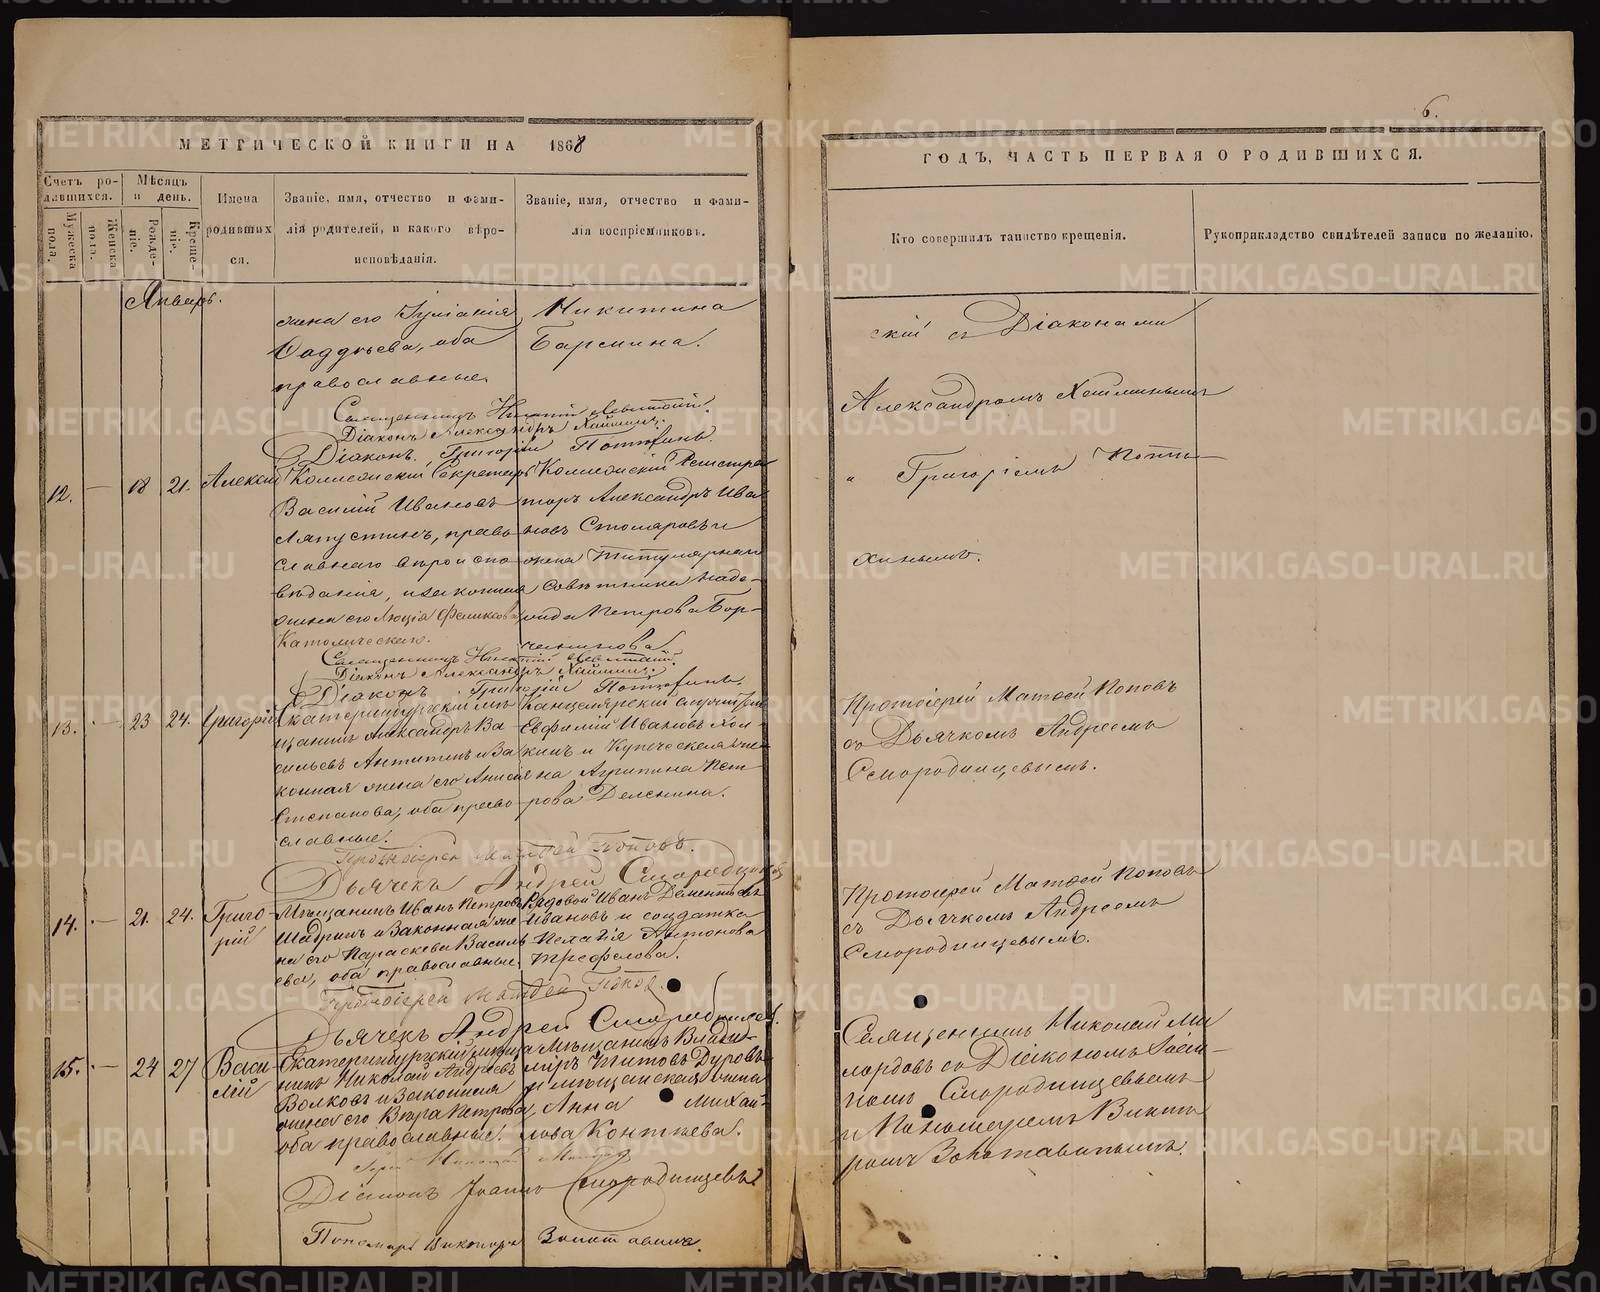 6.
МЕТРИЧЕСКОЙ КНИГИ НА 1868
ГОДЪ, ЧАСТЬ ПЕРВАЯ О РОДИВШИХСЯ.
Счетъ родившихся.
Мужеска пола.
Женска пола.
Мѣсяцъ и день.
Рожденіе.
Крещеніе.
Имена родившихся.
Званіе, имя, отчество и фамилія родителей, и какого вѣроисповѣданія.
Званіе, имя, отчество и фамилія воспріемниковъ.
Кто совершилъ таинство крещенія.
Рукоприкладство свидѣтелей записи по желанію.
Январь.
жена его Іуліанія
Фаддѣева, оба
православные.
Никитина
Бармина.
скій съ Діаконами
Александромъ
„ Григоріемъ Поте-
хинымъ.
Священникъ Левитскій.
Діаконъ Александръ
Діаконъ Григорій Потѣхинъ.
12. — 18 21. Алексій
Коллежскій Секретарь
Василій Ивановъ
Лапустинъ, право-
славнаго вѣроиспо-
вѣданія, и законная
жена его Люція Феликсова
Католическаго.
Коллежскій Регистра-
торъ Александръ Ива-
новъ Столяровъ и
жена Титулярнаго
Совѣтника Наде-
жда Петрова Бор-
чанинова.
Священникъ Левитскій.
Діаконъ Александръ
Діаконъ Григорій Потѣхинъ.
13. — 23 24. Григорій
Екатеринбургскій мѣ-
щанинъ Александръ Ва-
сильевъ Антипинъ и За-
конная жена его Анисія
Степанова, оба право-
славные.
Канцелярскій служитель
Евфимій Ивановъ Хол-
кинъ и Купеческая же-
на Агрипина Пет-
рова Деленина.
Протоіерей Матѳей Поповъ
съ Дьячкомъ Андреемъ
Смородинцевымъ.
Протоіерей Матѳей Поповъ.
Дьячекъ Андрей Смородинцевъ
14. — 21. 24. Григо-
рій
Мѣщанинъ Иванъ Петровъ
Шадринъ и Законная же-
на его Параскева Василь-
ева, оба православные.
Рядовой Иванъ Дементьевъ
Ивановъ и солдатка
Пелагія Антонова
Трефелова.
Протоіерей Матѳей Поповъ
съ Дьячкомъ Андреемъ
Смородинцевымъ.
Протоіерей Матѳей Поповъ.
Дьячекъ Андрей Смородинцев.
15. — 24 27 Васи-
лій
Екатеринбургскій мѣща-
нинъ Николай Андреевъ
Волковъ и Законная
жена его Вѣра Петрова,
оба православные.
Мѣщанинъ Влади-
міръ Титовъ Дуровъ
и мѣщанская жена
Анна Михай-
лова Контіева.
Священникъ Николай Ми-
лордовъ съ Діакономъ Іоан-
номъ Смородинцевымъ
и Пономаремъ Викто-
ромъ
Діаконъ Іоаннъ Смородинцевъ
Пономарь Викторъ
METRIKI.GASO-URAL.RU